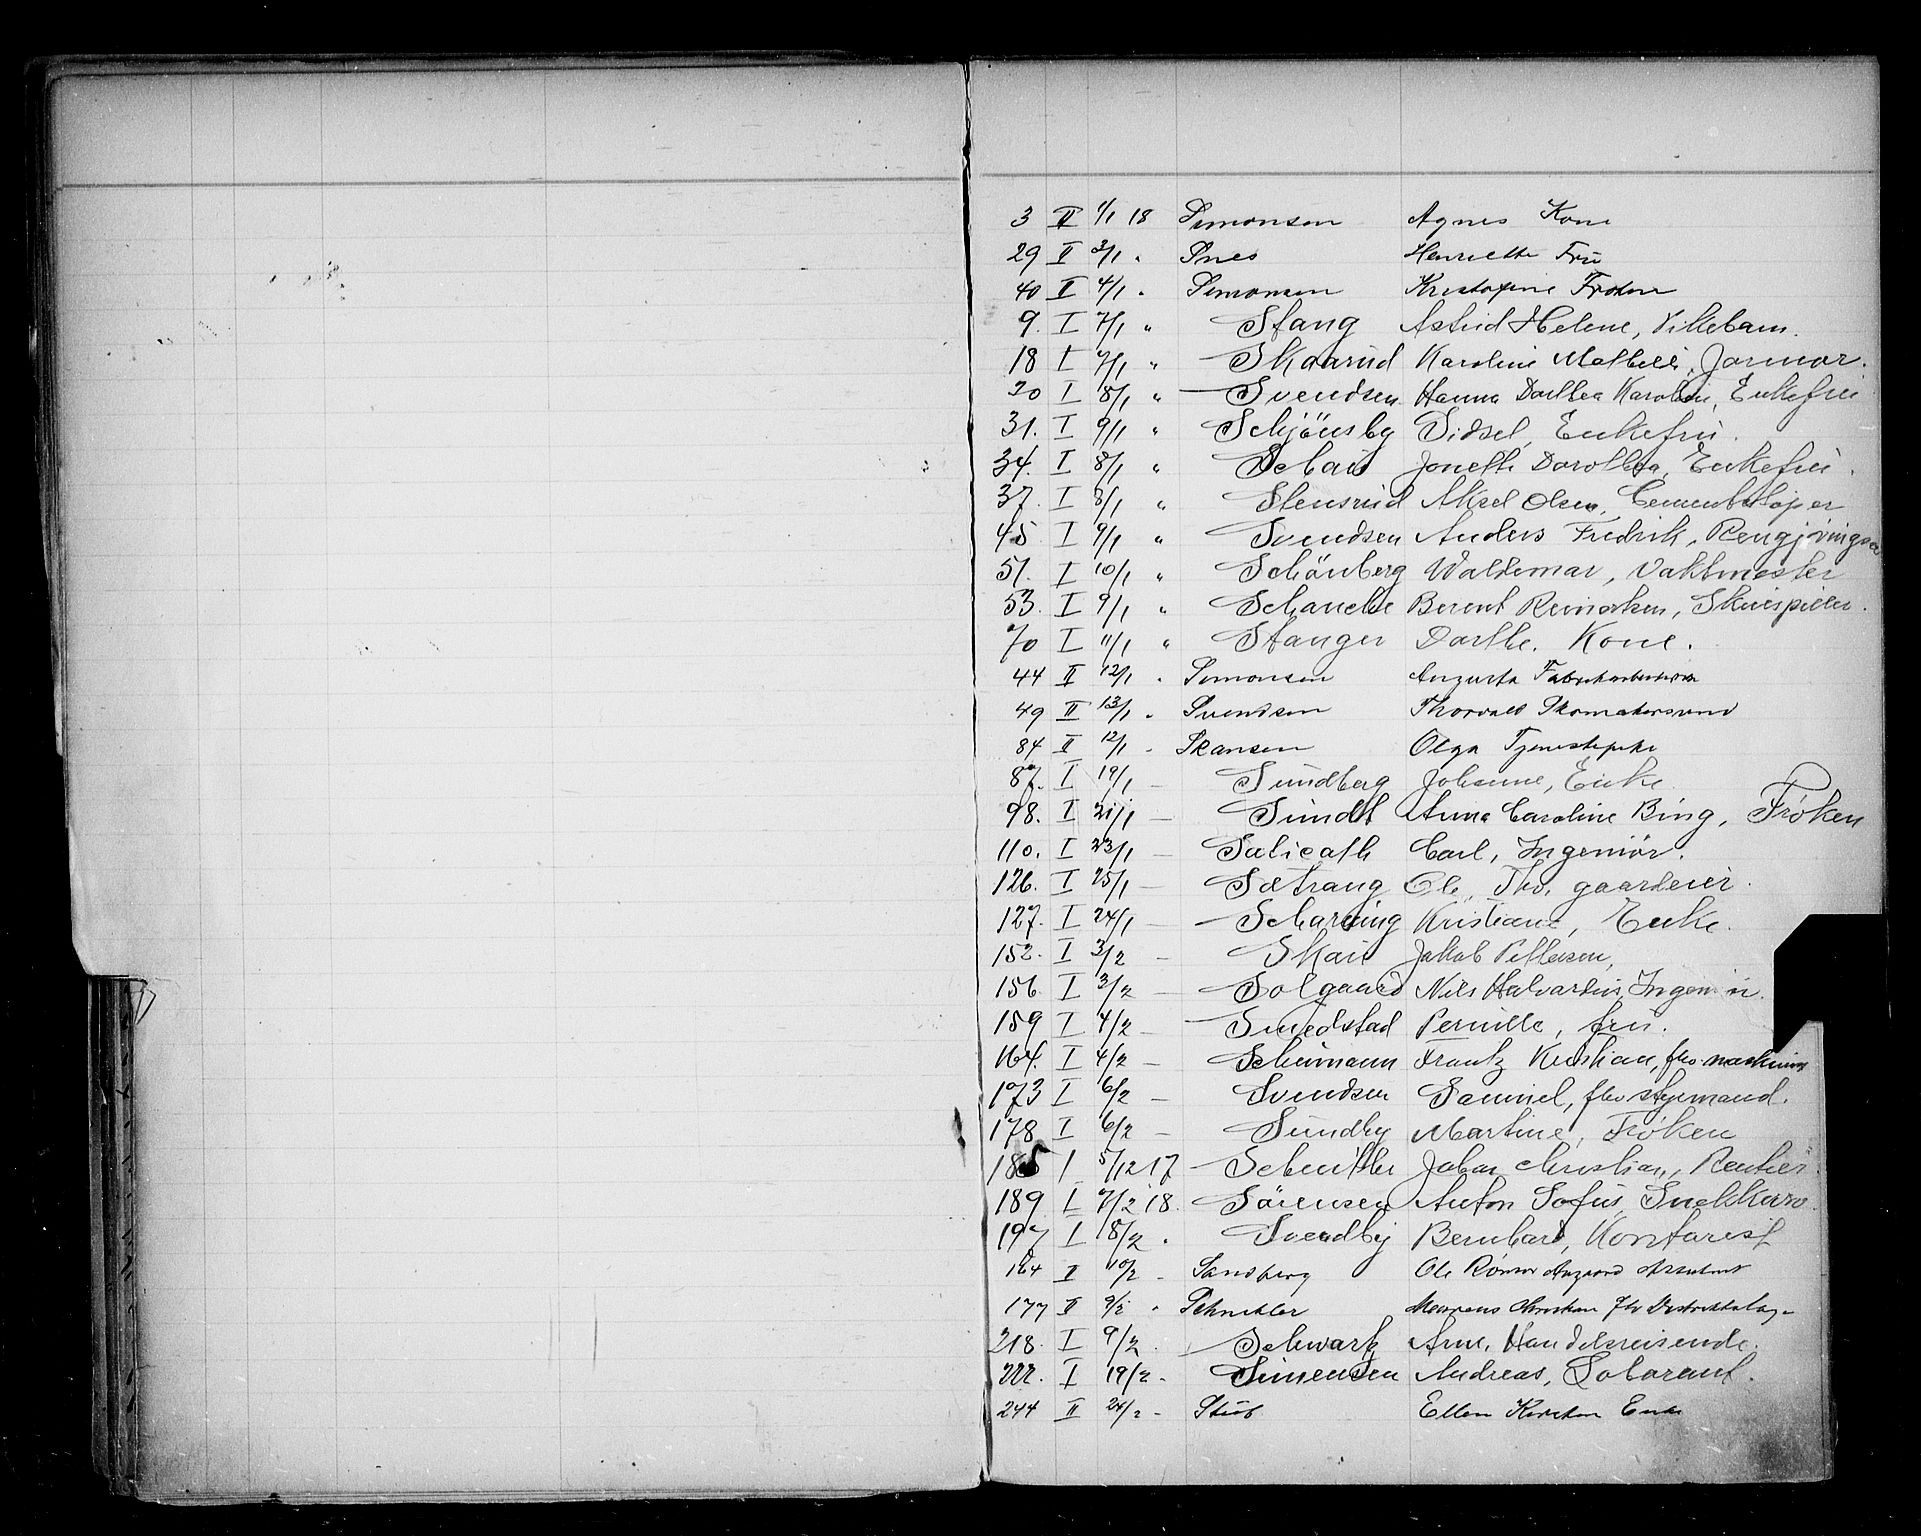 3 II 1/1 18 Simonsen Agnes Kone
29 II 3/1 " Snes Henriette Fru
40 II 4/1 " Simonsen Kristofine Frøken
9. I 7/1 " Stang Astrid Helene,
18 I 7/1 " Skaarud Karoline Mathilde, Jormor.
20 I 8/1 " Svendsen Hanna Dorthea Karoline, Enkefru
31. I 9/1 " Schjönsby Sidsel, Enkefru.
34. I 8/1 " Jonette Dorothea, Enkefru.
37. I 8/1 " Stensrud Aksel Olsen, Cementstøper
45 I 9/1 " Svendsen Anders Fredrik,
51. I 10/1 " Schönberg Waldemar, Vaktmester
53. I 9/1 " Schanche Berent Skuespiller.
70 I 11/1 " Stanger Dorthe. Kone.
44 II 12/1 " Simonsen Augusta Fabrikarbeiderske
49 II 13/1 " Svendsen Thorvald Skomakersvend
84 II 12/1 - Skansen Olga Tjenestepike
87. I 19/1 - Sundberg Johanne, Enke
98. I 21/1 - Sundt Anna Caroline Bing, Frøken
110. I 23/1 - Salicath Carl, Ingeniör.
126. I 25/1 - Sætrang Ole, Thv. gaardeier.
127. I 24/1 - Scharning Kristiane, Enke.
152. I 3/2 - Jakob Pettersen,
156 I 3/2 - Solgaard Nils Halvardius, Ingeniör.
159 I 4/2 - Smedstad Pernille, fru.
164. I 4/2 - Schumann Frantz Kristian, fhv maskinist
173 I 6/2 - Svendsen Samuel, fhv styrmand.
178 I 6/2 - Sundby Martine, Frøken
185 I 5/12 17 - Schnitler Johan Christian, Rentier
189 I 7/2 18. Sörensen Anton Sofus, Snekkersv.
197 I 8/2 " Svendby Bernhard, Kontorist
164 II 10/2 - Sandberg Ole Rømer Aagaard Assistent
177 II 9/2 " Schnitler Christian fhv
218. I 9/2 . Schwartz Arne, Handelsreisende.
222. I 19/2 - Simensen Andreas,
244 II 24/2 - Stub Ellen Kirsten Enke